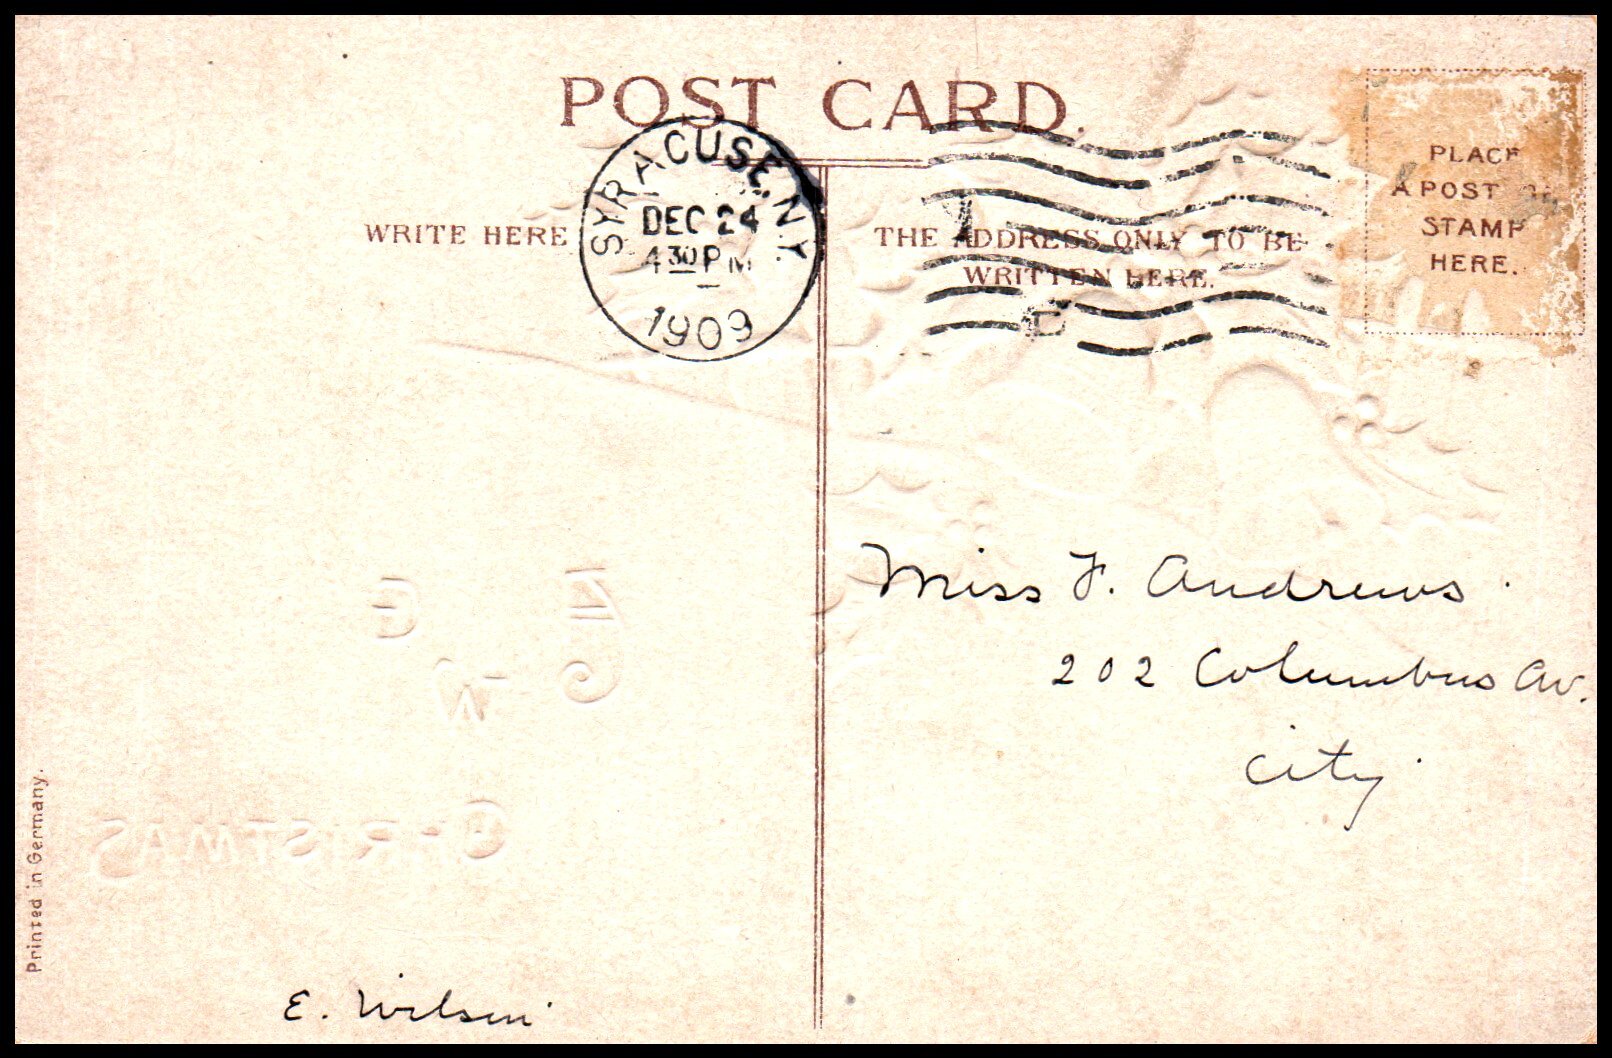 POST CARD.
SYRACUSE, N.Y.
DEC 24
4 30 P M
1909
WRITE HERE
THE ADDRESS ONLY TO BE
WRITTEN HERE.
PLACE
A POST
STAMP
HERE.
Miss F. Andrews
202 Columbus Av.
City
CHRISTMAS
Printed in Germany.
E. Wilson